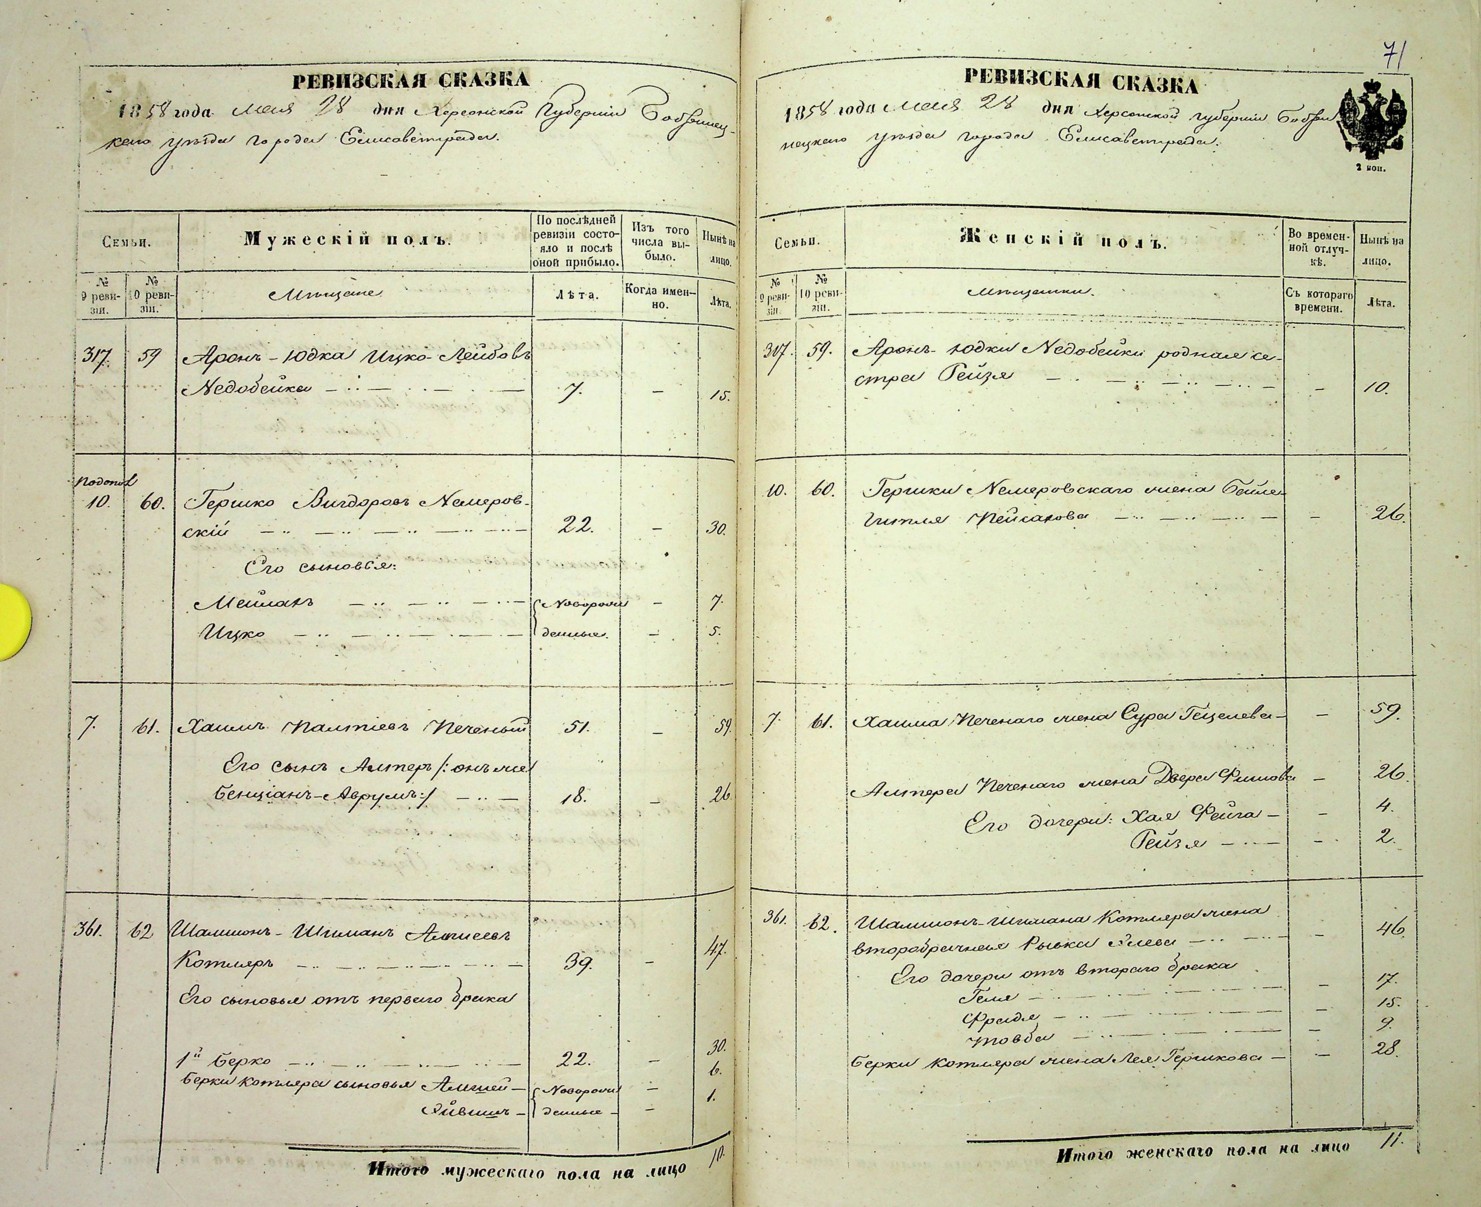 РЕВИЗСКАЯ СКАЗКА
1858 года Мая 28 дня Херсонской Губерніи Бобринец-
каго уѣзда города Елисаветграда.
Семьи.
Мужескій полъ.
По послѣдней ревизіи состояло и послѣ оной прибыло.
Изъ того числа выбыло.
Нынѣ на лицо.
№ 9 ревизіи.
№ 10 ревизіи.
Мѣщане
Лѣта.
Когда именно.
Лѣта.
317. 59 Аронъ-Юдка Ицко-Лейбовъ
Недобейка 7. — 15.
10. 60. Гершко Вигдоровъ Немеров-
скій 22. — 30.
Его сыновья:
Мейлахъ Новорож — 7.
Ицко денные. — 5.
7. 61. Хаимъ Палтіевъ Печеный 51. — 59.
Его сынъ Алтеръ /: онъ же
Бенціанъ-Аврумъ :/ 18. — 26
361. 62 Шамшонъ-Шиманъ
Котляръ 39. — 47.
Его сыновья отъ перваго брака
1й Берко 22. — 30.
Берки Котляра сыновья Новорож — 6.
денные — 1.
Итого мужескаго пола на лицо 10.
71
РЕВИЗСКАЯ СКАЗКА
1858 года Мая 28 дня Херсонской Губерніи Бобри
нецкаго уѣзда города Елисаветграда.
2 коп.
Семьи.
Женскій полъ.
Во временной отлучкѣ.
Нынѣ на лицо.
№ 9 ревизіи.
№ 10 ревизіи.
Мѣщанки.
Съ котораго времени.
Лѣта.
317. 59. Аронъ-Юдки Недобейки родная се-
стра Гейзя — 10.
10. 60. Гершки Немеровскаго жена Бейла
Гитля — 26.
7. 61. Хаима Печенаго жена Сура Гецелева — 59.
Алтера Печенаго жена Двера — 26.
Его дочери: Хая Фейга — 4.
Гейзя — 2.
361. 62. Шамшонъ-Шимана Котляра жена
второбрачная Рывка — 46.
Его дочери отъ втораго брака
Геня — 17.
Фрадя — 15.
Товба — 9.
Берки Котляра жена Лея Гершкова — 28.
Итого женскаго пола на лицо 11.